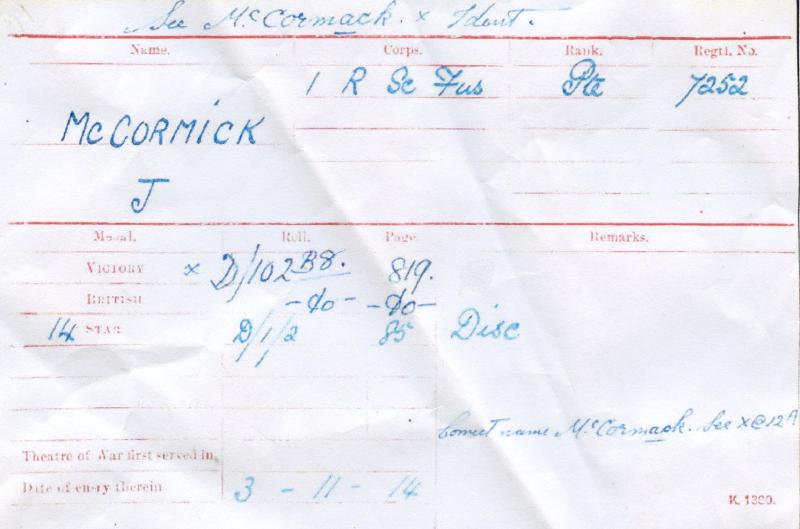 See McCormack. x Ident.
Name. Corps. Rank. Regtl. No.
1 R Sc Fus Pte 7252
McCORMICK
J
Medal. Roll. Page. Remarks.
VICTORY x D/102 B8. 819.
BRITISH -do- -do-
14 STAR D/1/2 85 Disc
Correct name McCormack. See x@12A
Theatre of War first served in
Date of entry therein 3 - 11 - 14
K. 1380.